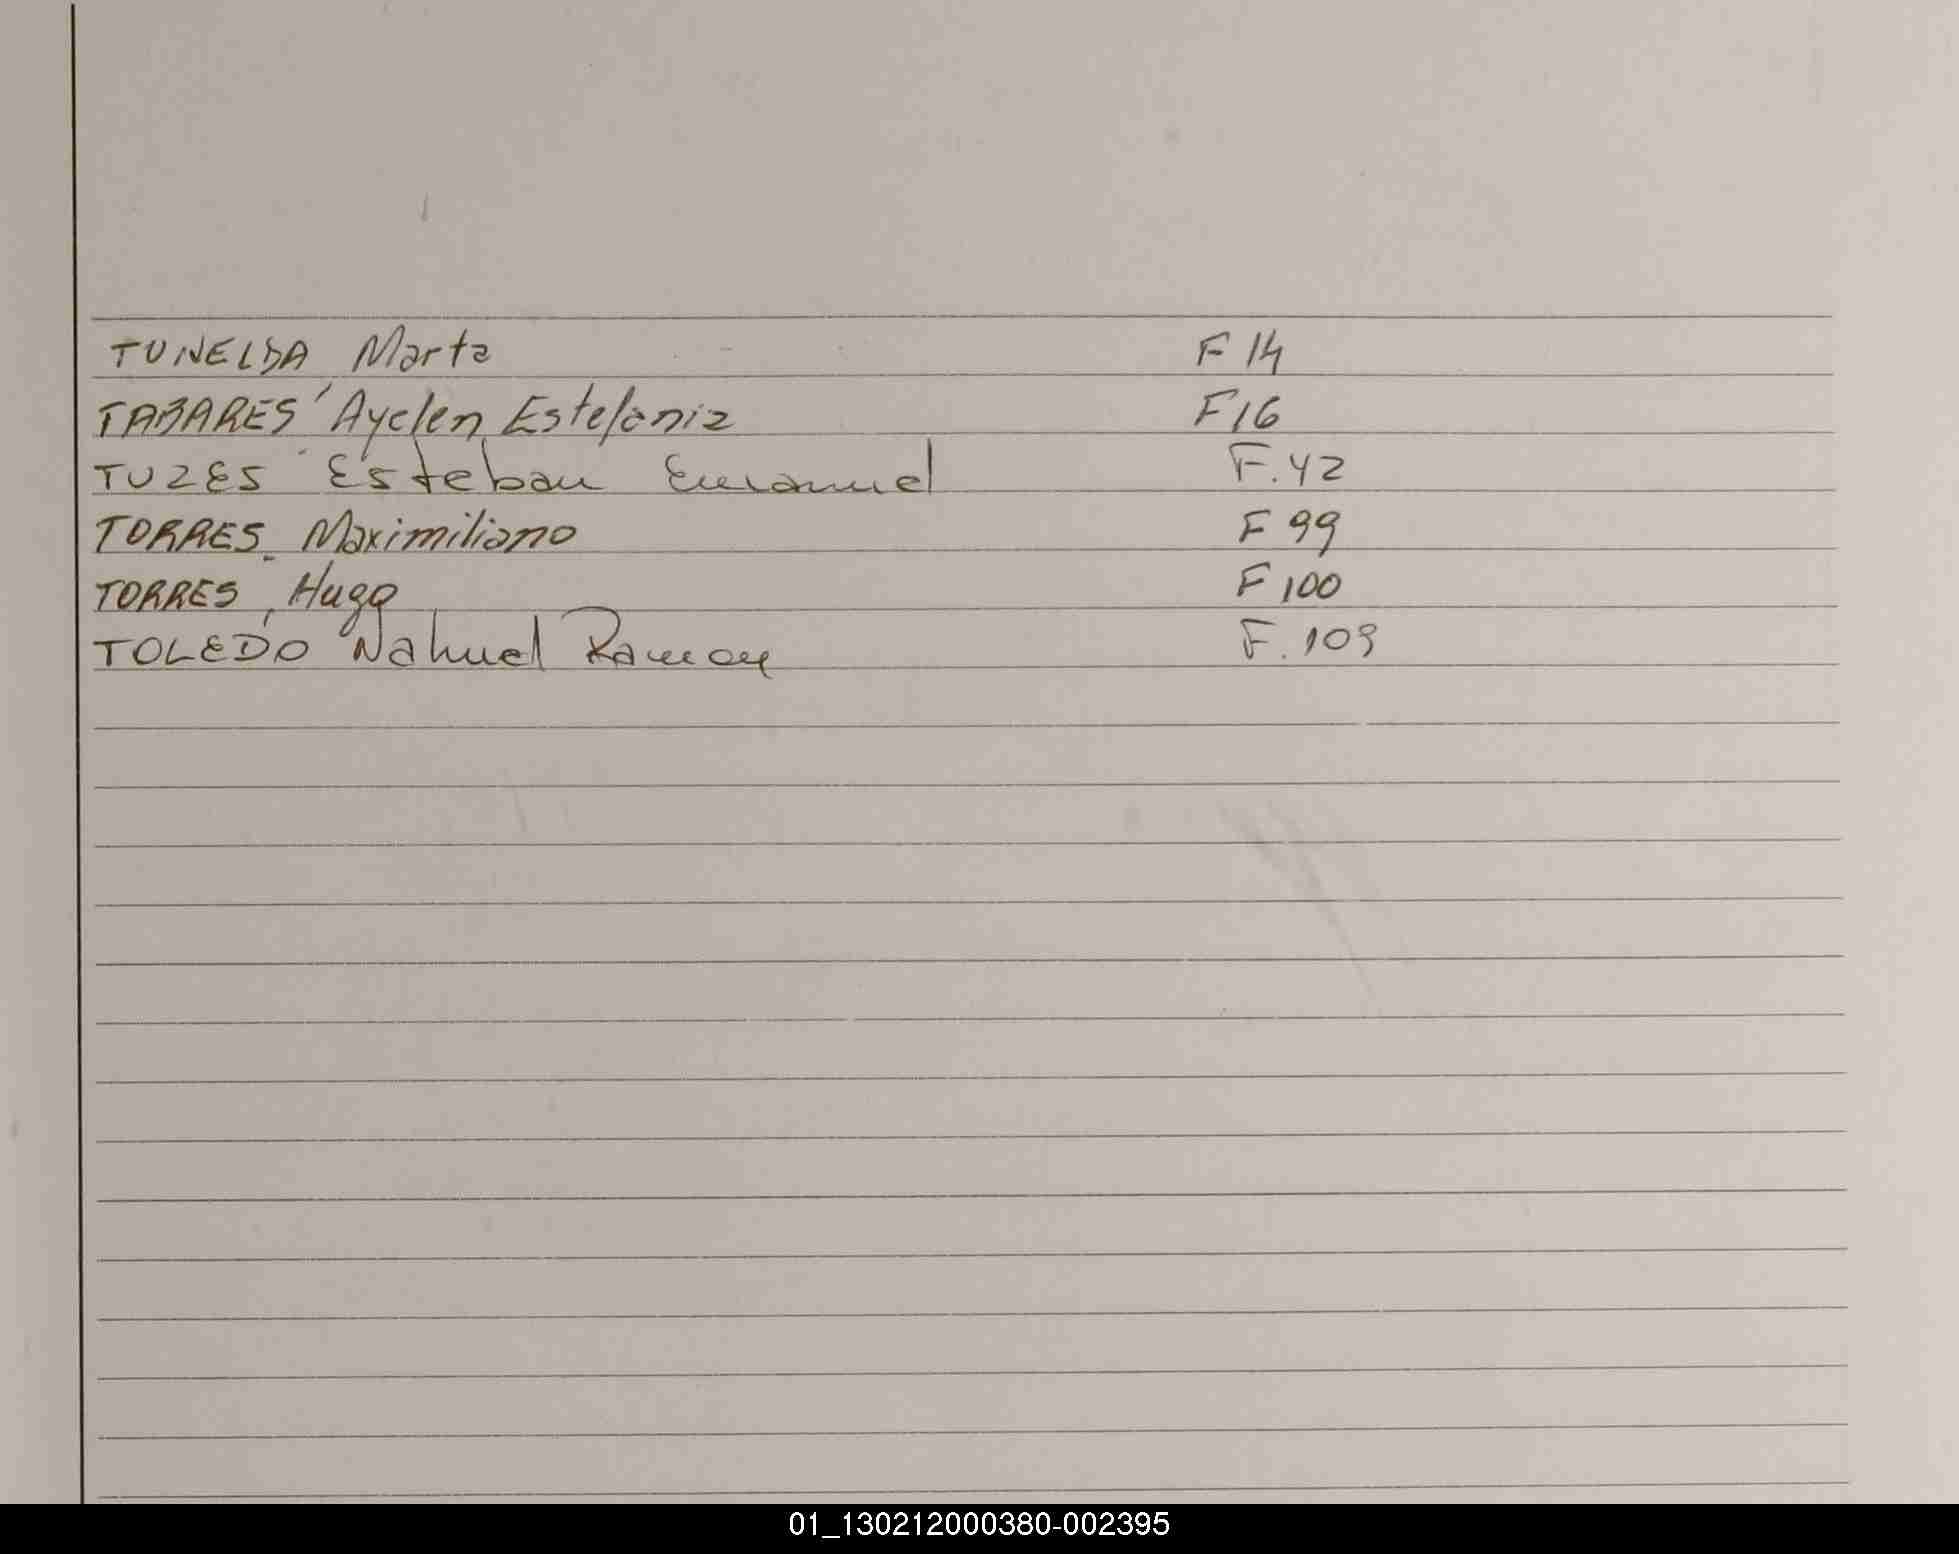 TUNELDA Marta F 14
TABARES Ayelen Estefania F 16
TUZES Esteban Emanuel F. 42
TORRES Maximiliano F 99
TORRES, Hugo F 100
TOLEDO Nahuel Ramon F. 109
01_130212000380-002395